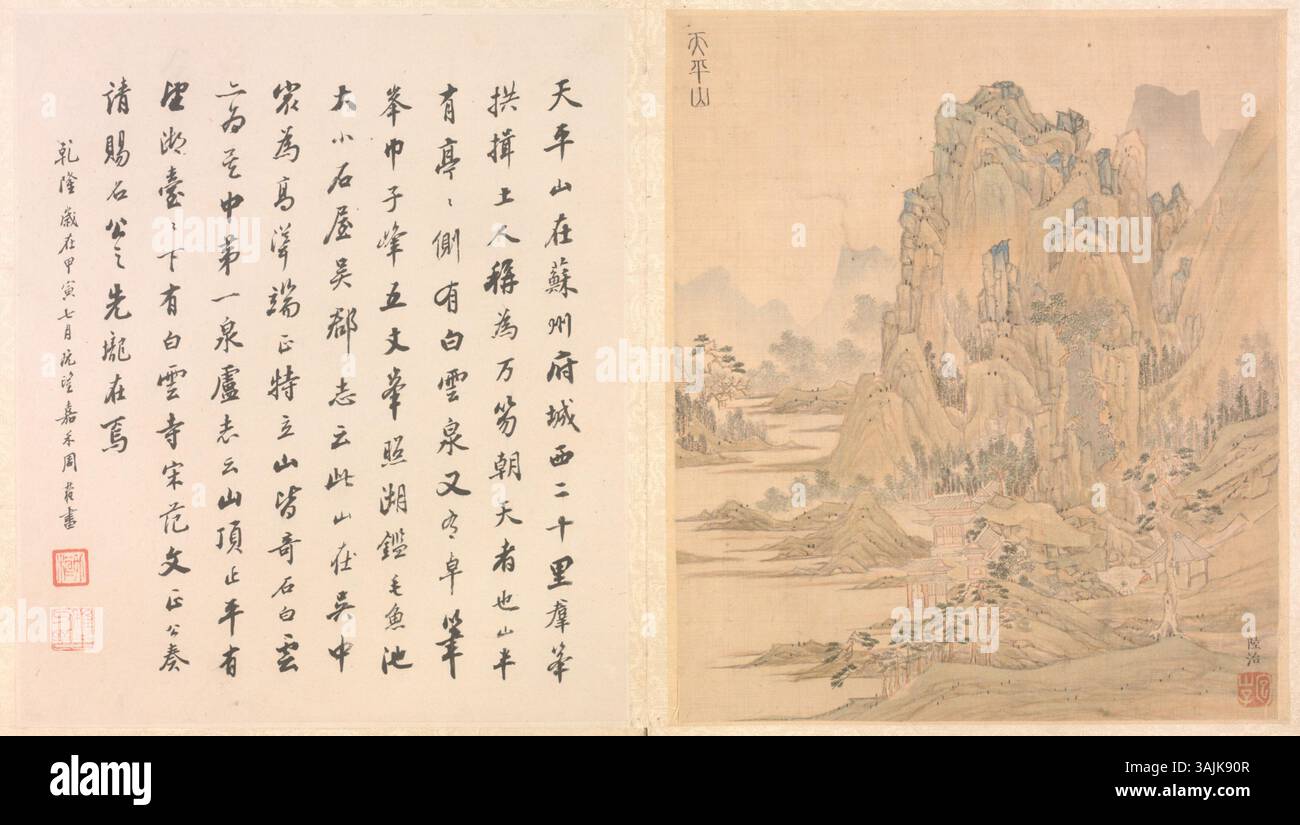 天平山在蘇州府城西二十里羣峯
拱揖土人稱為万笏朝天者也山半
有亭〻側有白雲泉又有卓筆
峯巾子峰五丈峯照湖鑑毛魚池
大小石屋吴郡志云此山在吴中
㝡為高聳端正特立山皆奇石白雲
亦為吴中第一泉盧志云山頂正平有
望湖臺〻下有白雲寺宋范文正公奏
請賜名公之先壠在焉
乾隆歲在甲寅七月既望嘉禾周
書
天平山
陸治
alamy
Image ID: 3AJK90R
www.alamy.com